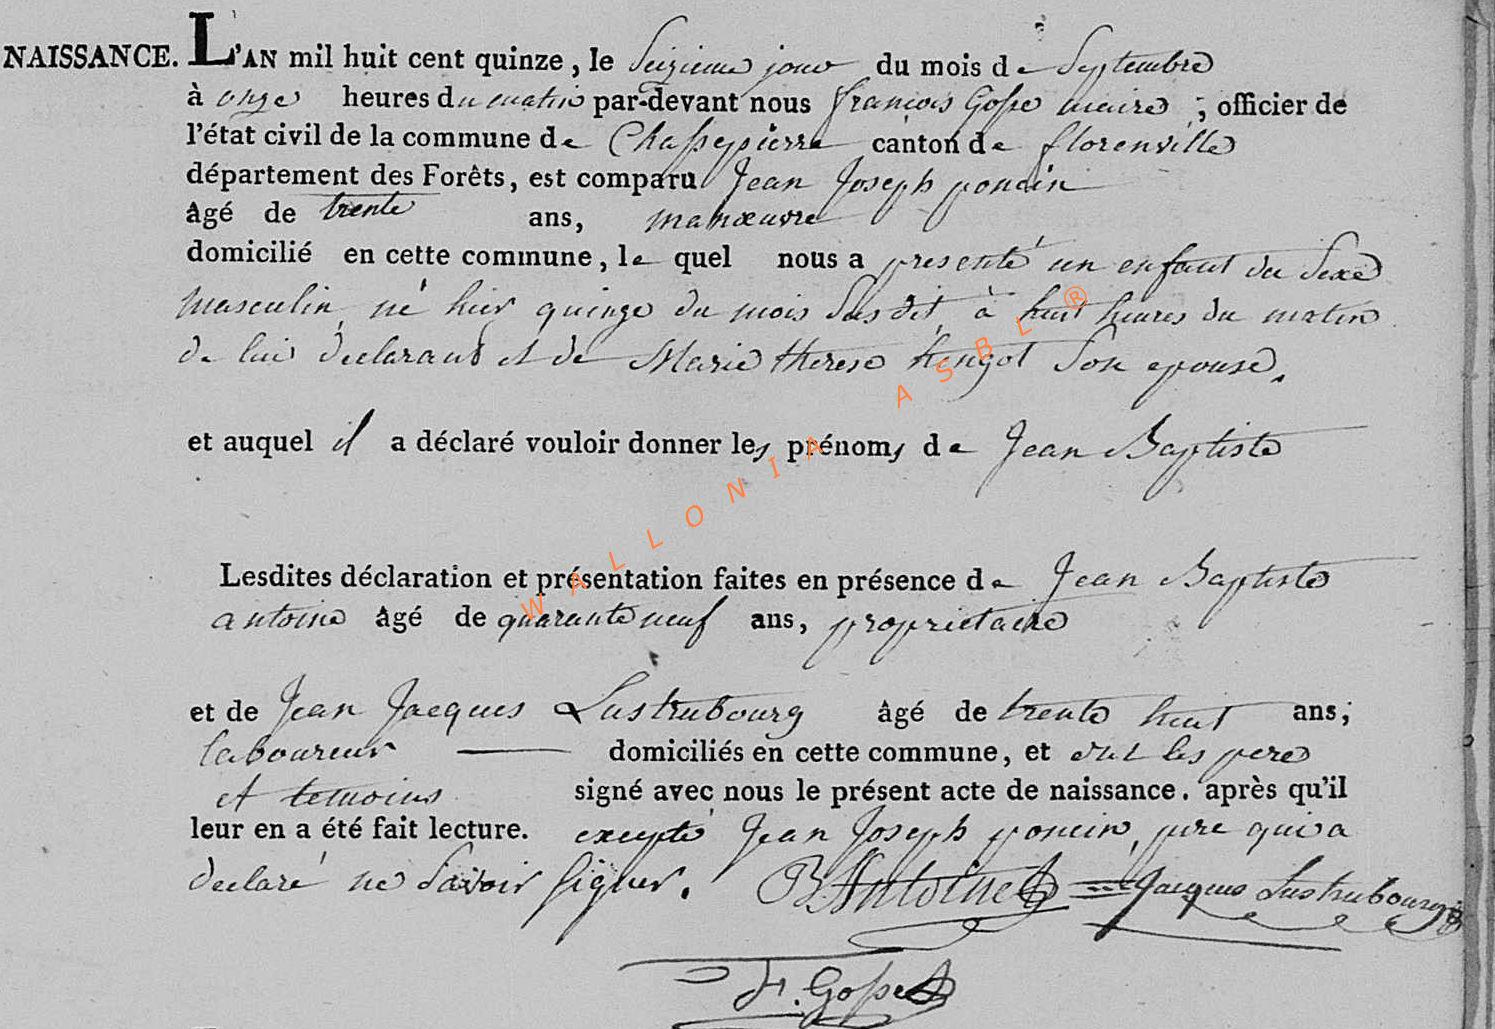 NAISSANCE. L'AN mil huit cent quinze, le Seizieme jour du mois de Septembre
à onze heures du matin par-devant nous francois Gosse maire ; officier de
l'état civil de la commune de Chassepierre canton de florenville
département des Forêts, est comparu Jean Joseph poncin
âgé de trente ans, manœuvre
domicilié en cette commune, le quel nous a presenté un enfant du Sexe
masculin né hier quinze du mois Susdit, à huit heures du matin
de lui declarant et de Marie therese hengot Son epouse.
et auquel il a déclaré vouloir donner les prénoms de Jean Baptiste
Lesdites déclaration et présentation faites en présence de Jean Baptiste
antoine âgé de quarante neuf ans, proprietaire
et de Jean Jacques Lustrubourg âgé de trente huit ans,
laboureur domiciliés en cette commune, et ont les pere
et temoins signé avec nous le présent acte de naissance. après qu'il
leur en a été fait lecture. excepté Jean Joseph poncin, pere qui a
declaré ne Savoir Signer. B Antoine Jacques Lustrubourg
F. Gosse
WALLONIA ASBL ®